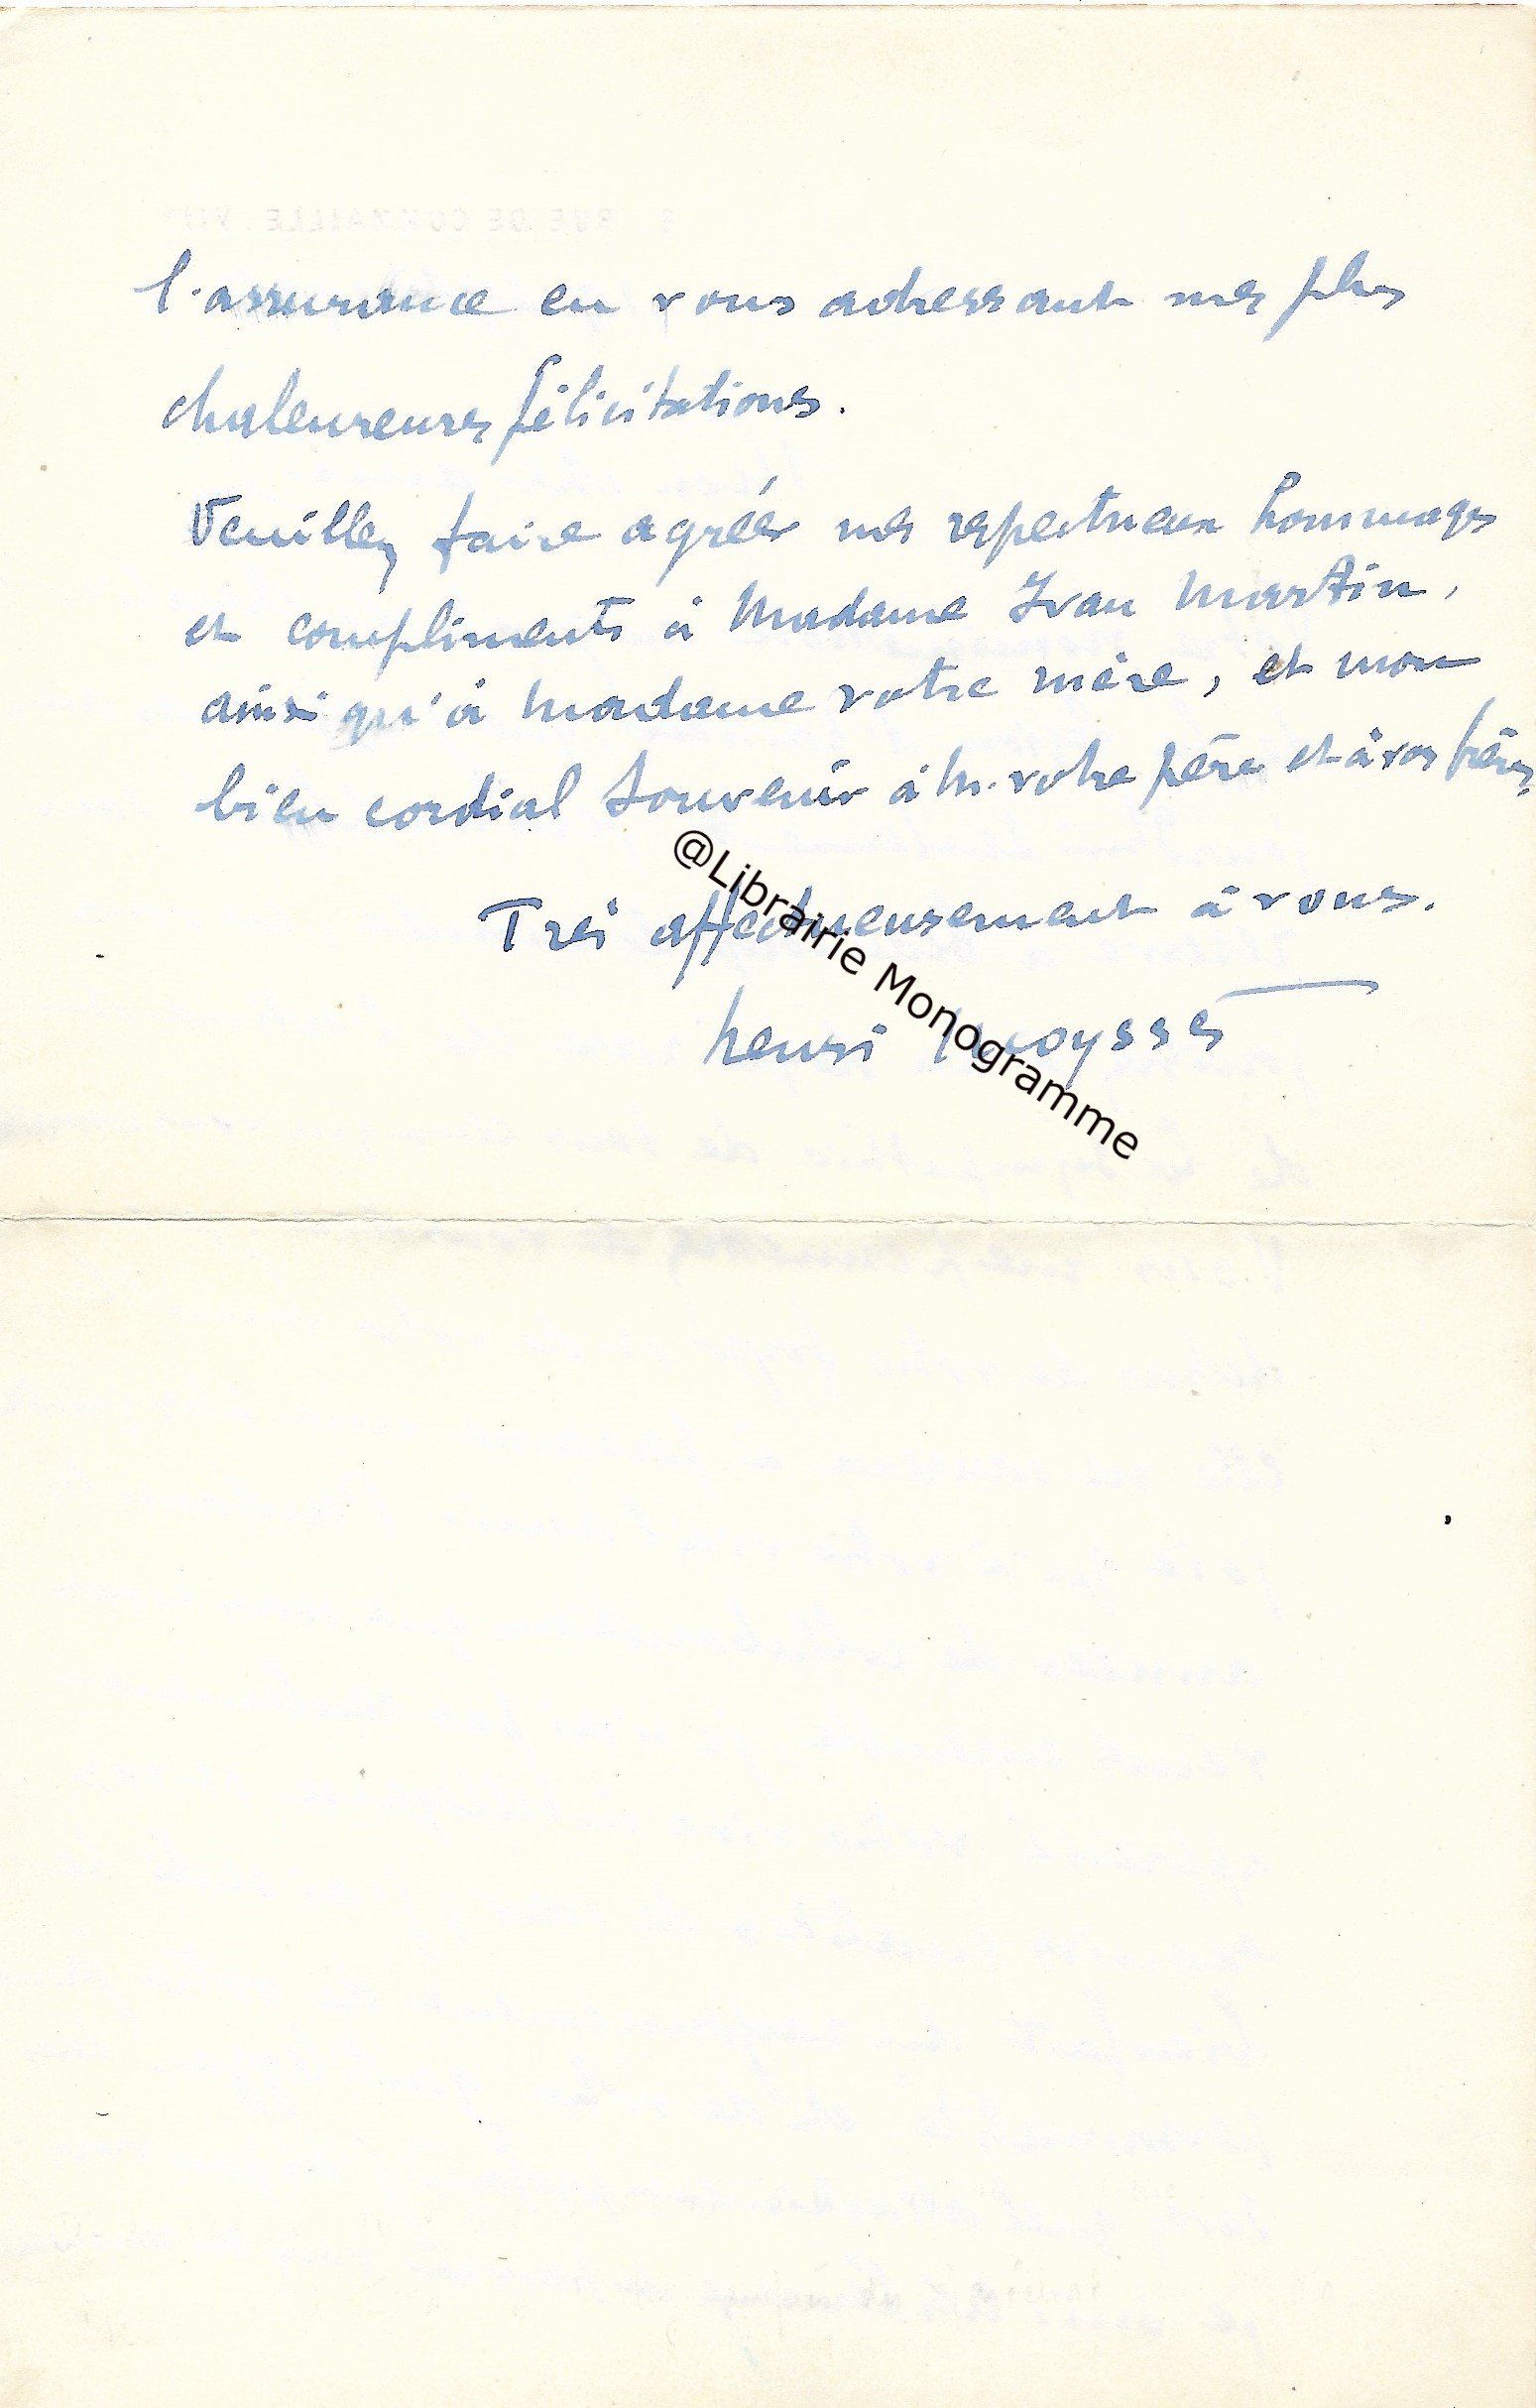 l'assurance en vous adressant mes plus
chaleureuses félicitations.
Veuillez faire agréer mes respectueux hommages
et compliments à Madame Ivan Martin,
ainsi qu'à Madame votre mère, et mon
bien cordial souvenir à M. votre père et à vos frères.
Très affectueusement à vous.
henri
@Librairie Monogramme
RUE DE COURZAILLE. VII